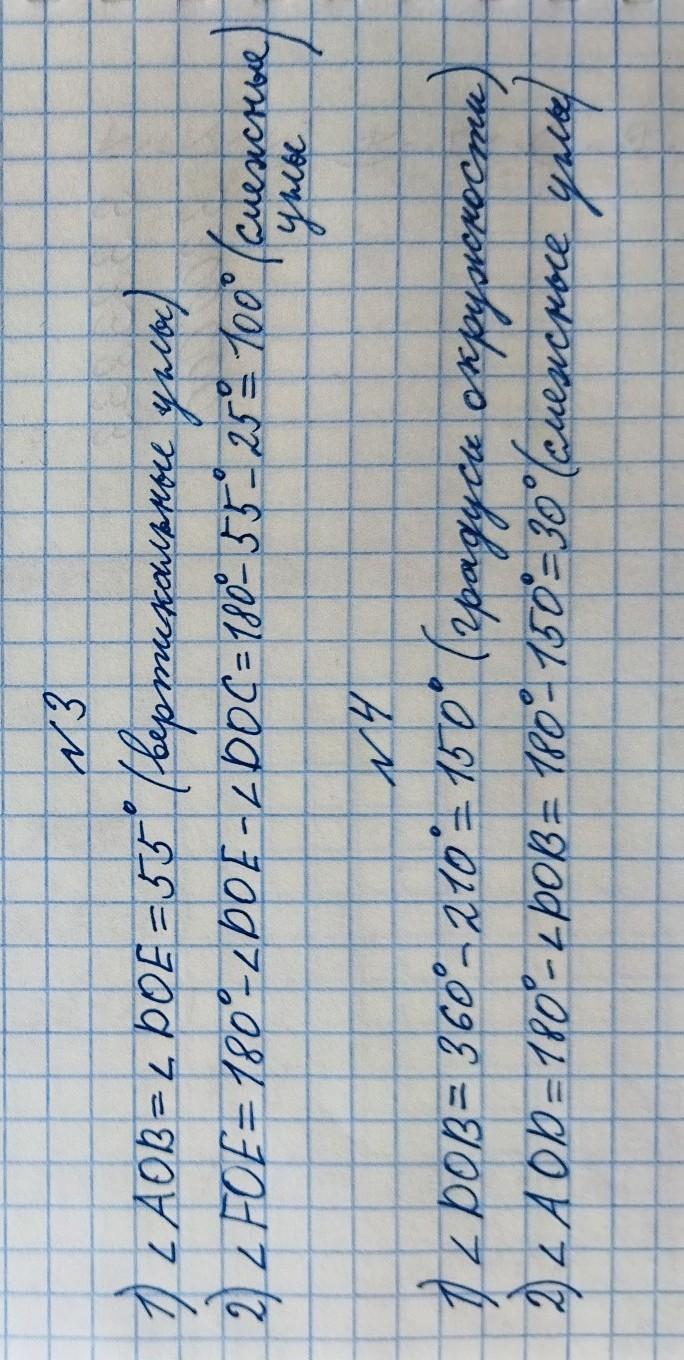 N3
1) ∠AOB = ∠DOE = 55° (вертикальные углы)
2) ∠FOE = 180° - ∠DOE - ∠DOC = 180° - 55° - 25° = 100° (смежные
углы
N4
1) ∠DOB = 360° - 210° = 150° (градусы окружности)
2) ∠AOD = 180° - ∠DOB = 180° - 150° = 30° (смежные углы)